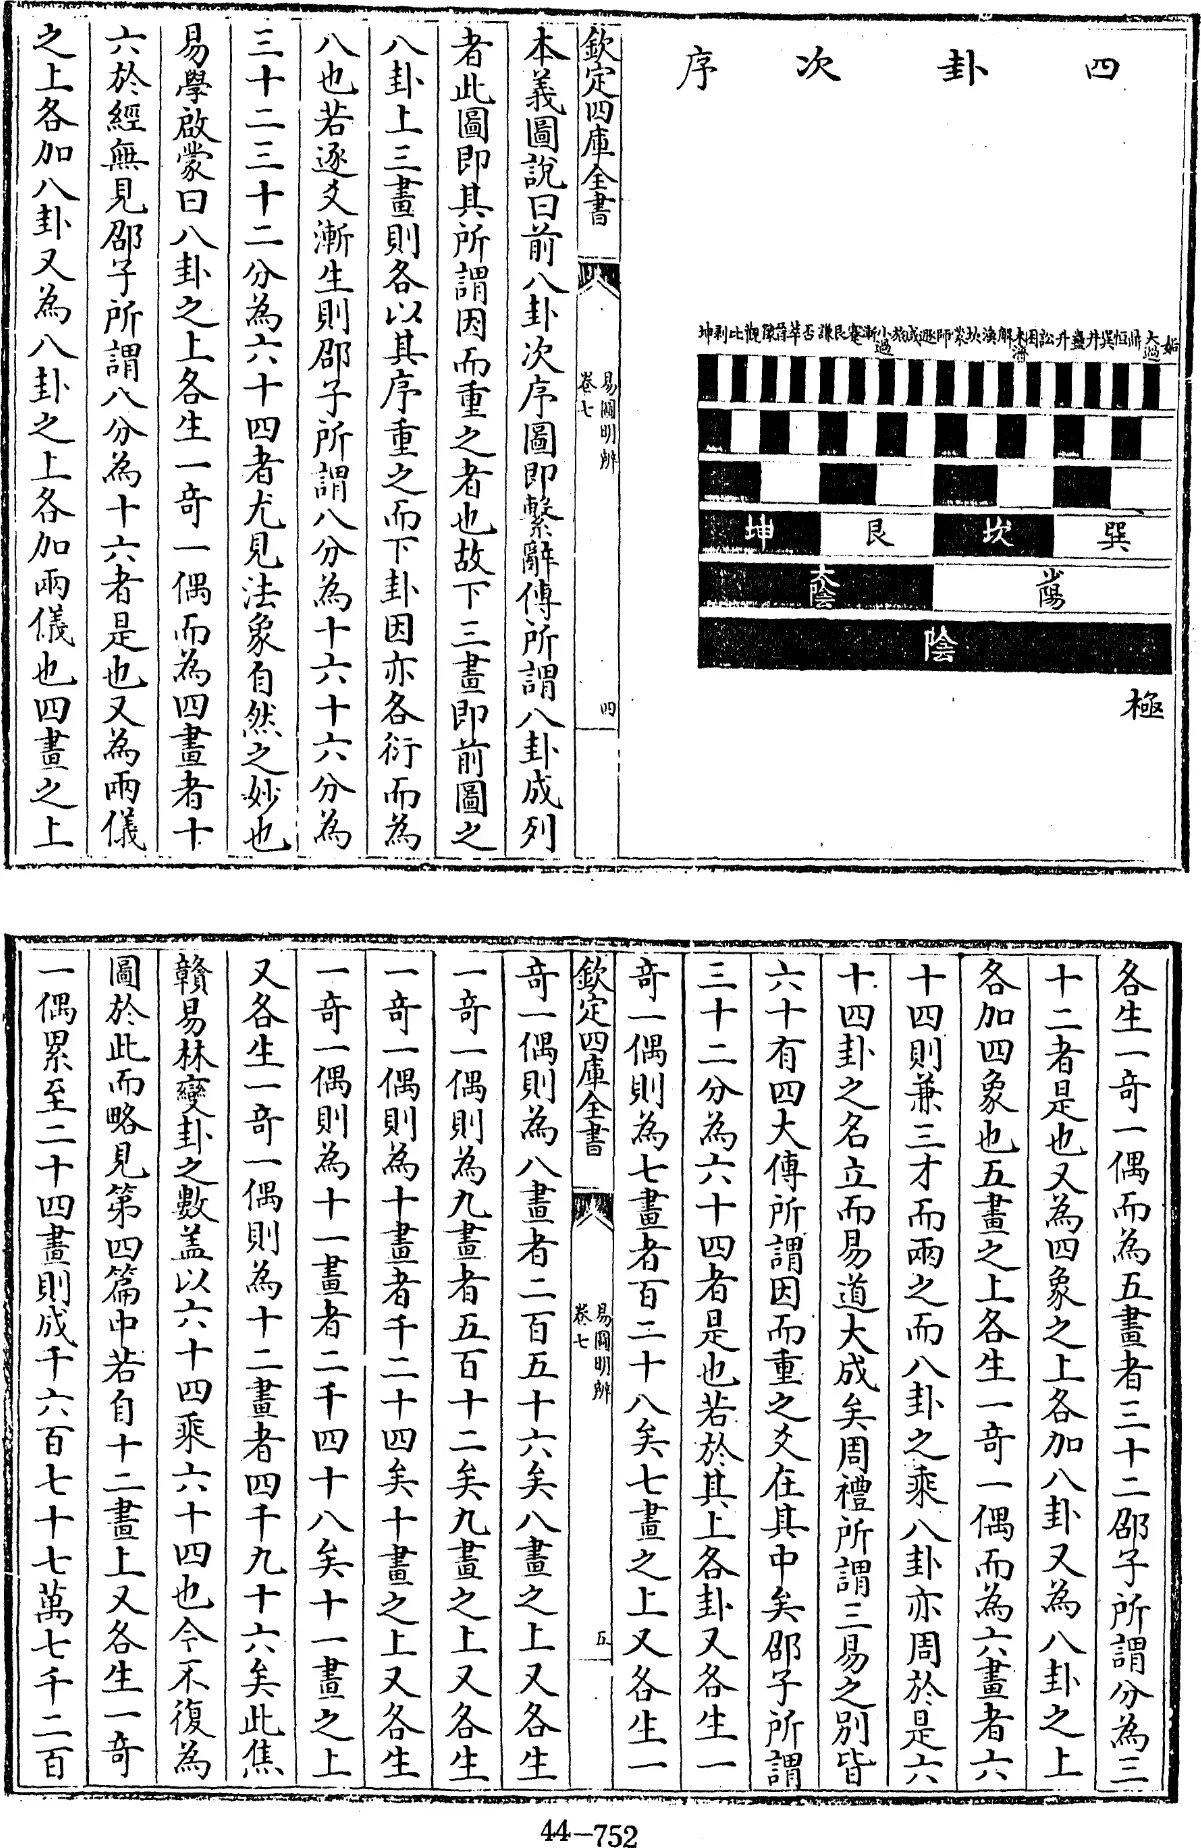 四卦次序
姤大過鼎恒巽井蠱升訟困未濟解渙坎蒙師遯咸旅小過漸蹇艮謙否萃晉豫觀比剥坤
巽坎艮坤
少陽太陰
陰
極
欽定四庫全書
易圖明辨
卷七
四
本義圖說曰前八卦次序圖即繫辭傳所謂八卦成列
者此圖即其所謂因而重之者也故下三畫即前圖之
八卦上三畫則各以其序重之而下卦因亦各衍而為
八也若逐爻漸生則邵子所謂八分為十六十六分為
三十二三十二分為六十四者尤見法象自然之妙也
易學啟蒙曰八卦之上各生一奇一偶而為四畫者十
六於經無見邵子所謂八分為十六者是也又為兩儀
之上各加八卦又為八卦之上各加兩儀也四畫之上
各生一奇一偶而為五畫者三十二邵子所謂分為三
十二者是也又為四象之上各加八卦又為八卦之上
各加四象也五畫之上各生一奇一偶而為六畫者六
十四則兼三才而兩之而八卦之乘八卦亦周於是六
十四卦之名立而易道大成矣周禮所謂三易之別皆
六十有四大傳所謂因而重之爻在其中矣邵子所謂
三十二分為六十四者是也若於其上各卦又各生一
奇一偶則為七畫者百二十八矣七畫之上又各生一
欽定四庫全書
易圖明辨
卷七
五
奇一偶則為八畫者二百五十六矣八畫之上又各生
一奇一偶則為九畫者五百十二矣九畫之上又各生
一奇一偶則為十畫者千二十四矣十畫之上又各生
一奇一偶則為十一畫者二千四十八矣十一畫之上
又各生一奇一偶則為十二畫者四千九十六矣此焦
贛易林變卦之數蓋以六十四乘六十四也今不復為
圖於此而略見第四篇中若自十二畫上又各生一奇
一偶累至二十四畫則成千六百七十七萬七千二百
44-752